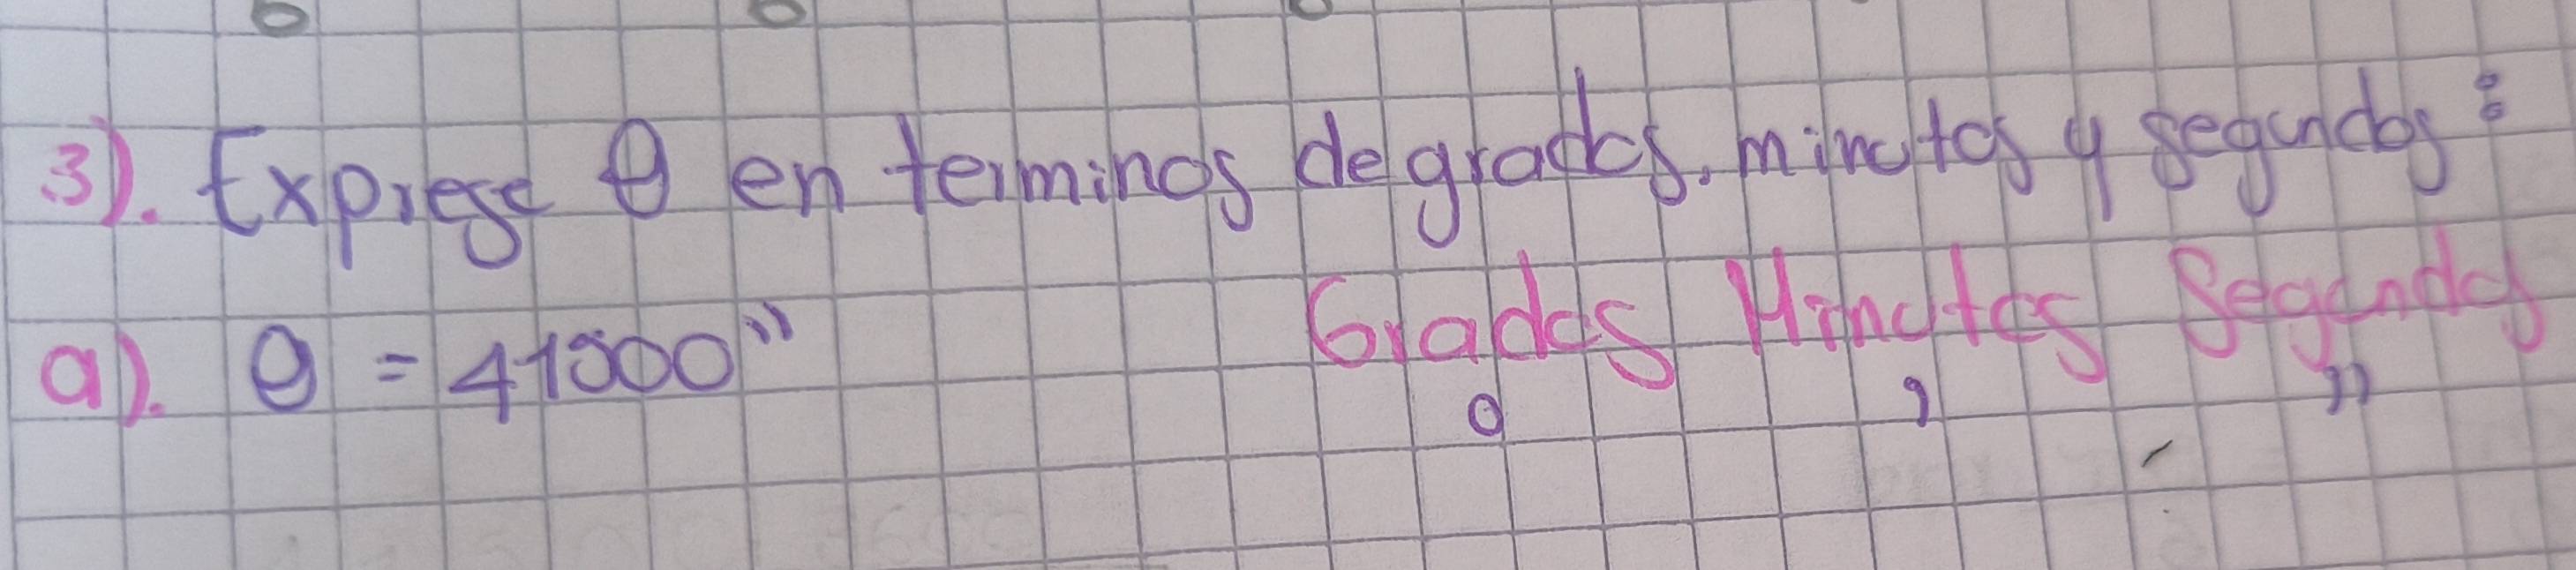 3). Exprese θ en terminos de grados, minutos y segundos:
Grados Minutos Segundos
a). θ = 41000"
° ' "